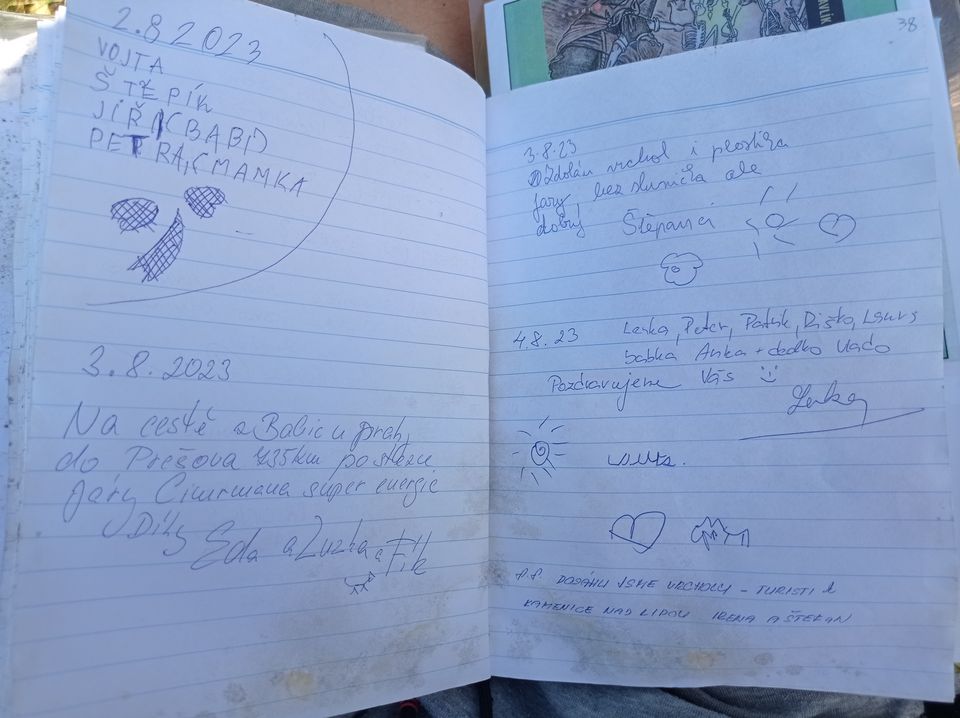 2.8 2023
VOJTA
ŠTĚPÍK
JIŘI(BABI)
PETRA,(MAMKA
3.8.2023
Na cestě z Babic u prahy
do Prešova 735km po stezce
Járy Cimrmana súper energie
Díky Eda a Zuzka a Fík
38
3.8.23
Zdolán vrchol i
Jary, bez sluníčka ale
dobrý Štěpánci
4.8.23 Lenka, Peter, Patrik, Riško, Laura
babka Anka + dedko Vlado
Pozdravujeme Vás
Lenka
Laura.
P.P. DOSÁHLI JSME VRCHOLU - TURISTI Z
KAMENICE NAD LIPOU IRENA A ŠTEFAN